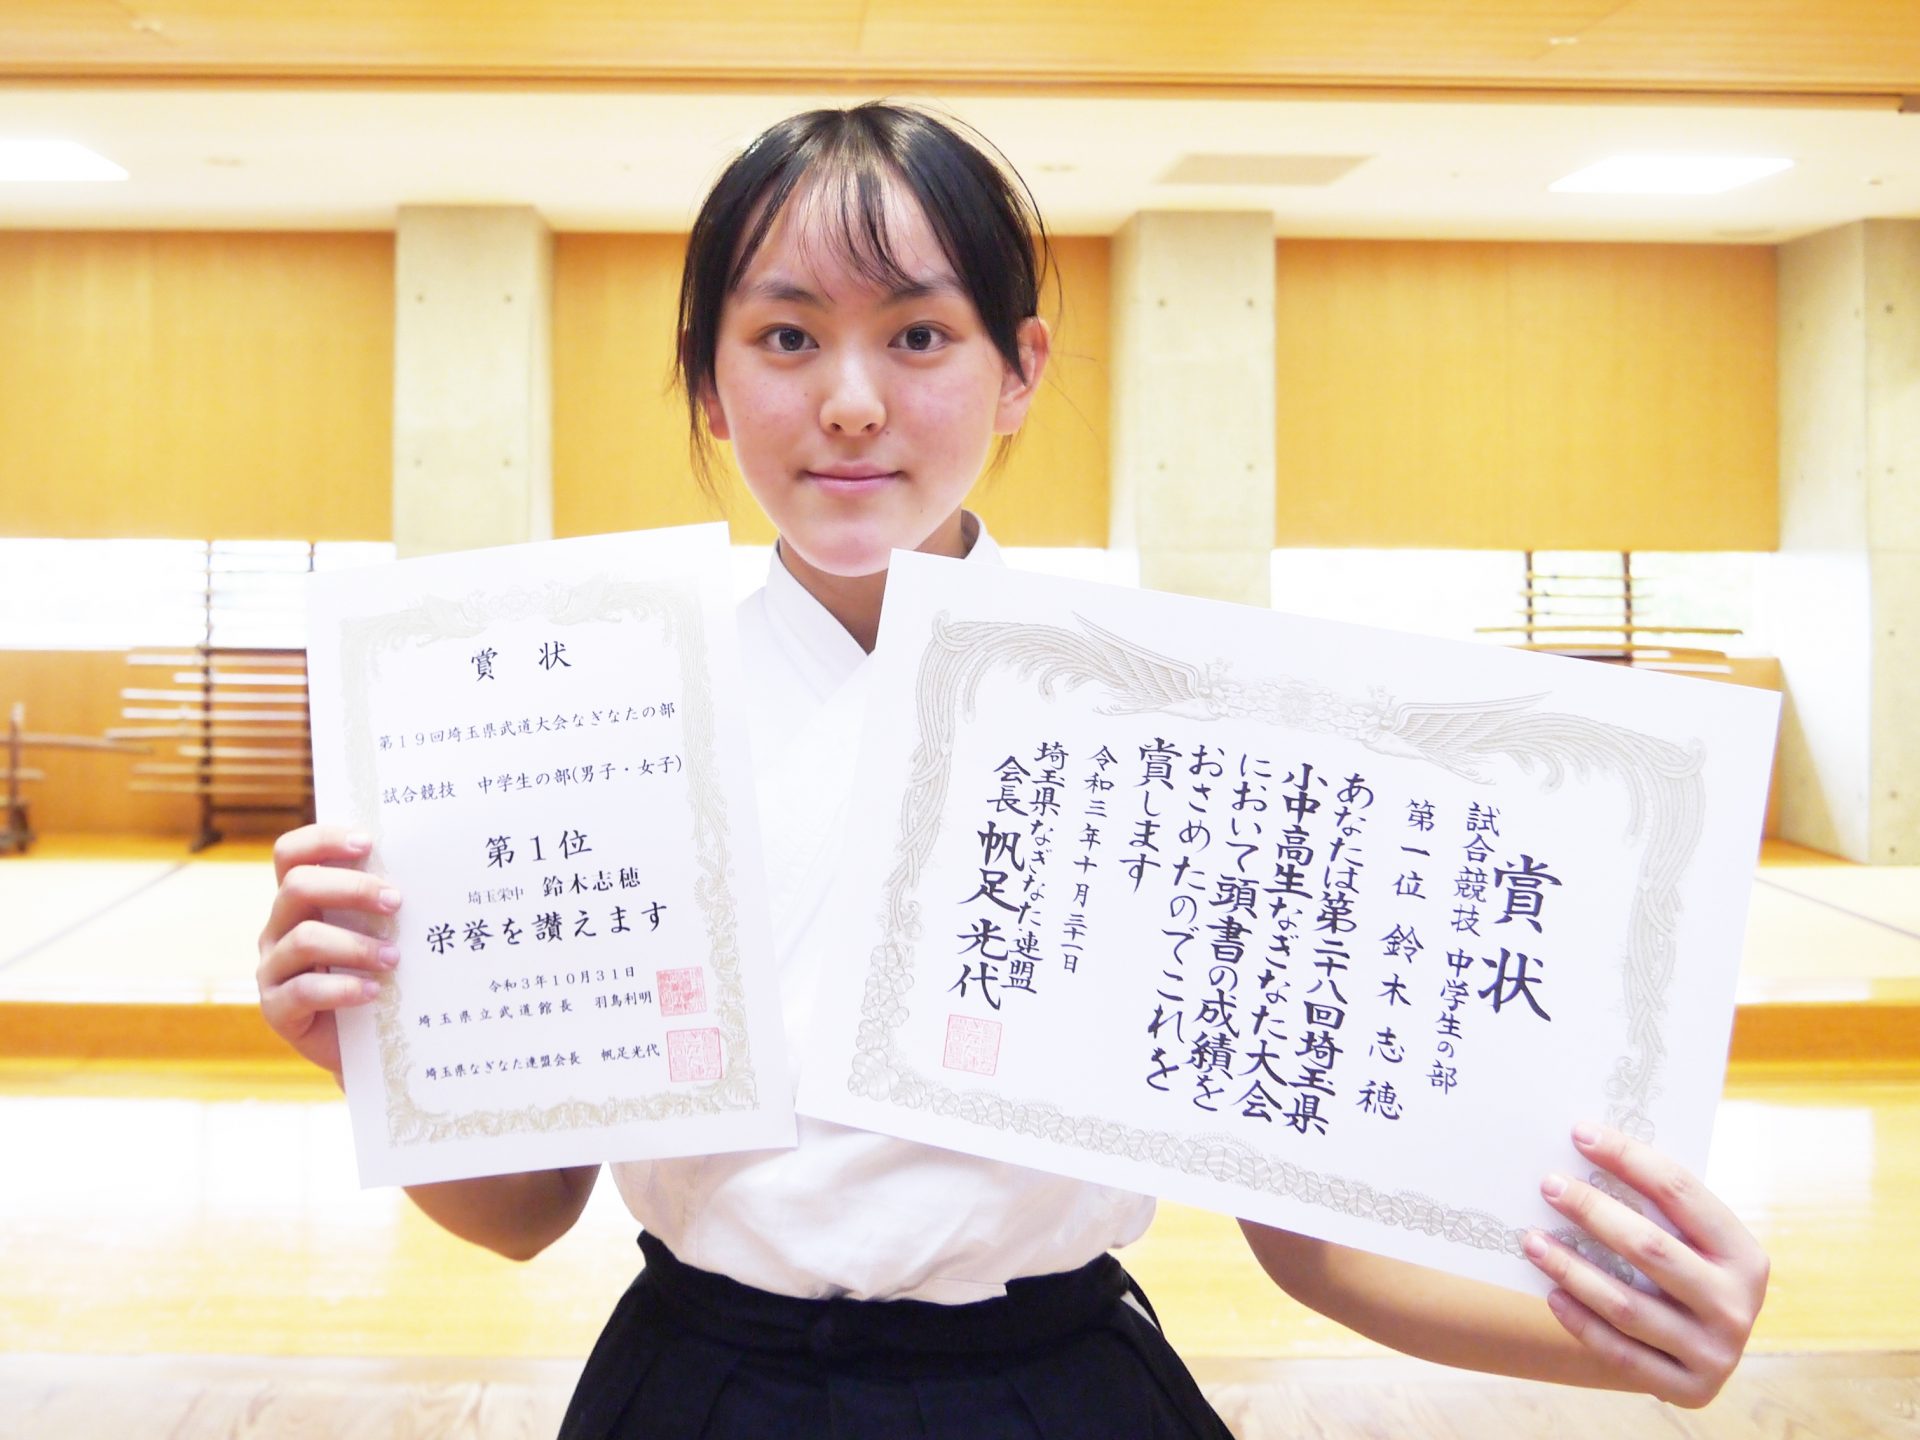 賞 状
第19回埼玉県武道大会なぎなたの部
試合競技 中学生の部(男子・女子)
第1位
埼玉栄中 鈴木志穂
栄誉を讃えます
令和3年10月31日
埼玉県立武道館長 羽鳥利明
埼玉県なぎなた連盟会長 帆足光代
賞状
試合競技 中学生の部
第一位 鈴木志穂
あなたは第二十八回埼玉県
小中高生なぎなた大会
において頭書の成績を
おさめたのでこれを
賞します
令和三年十月三十一日
埼玉県なぎなた連盟
会長 帆足光代